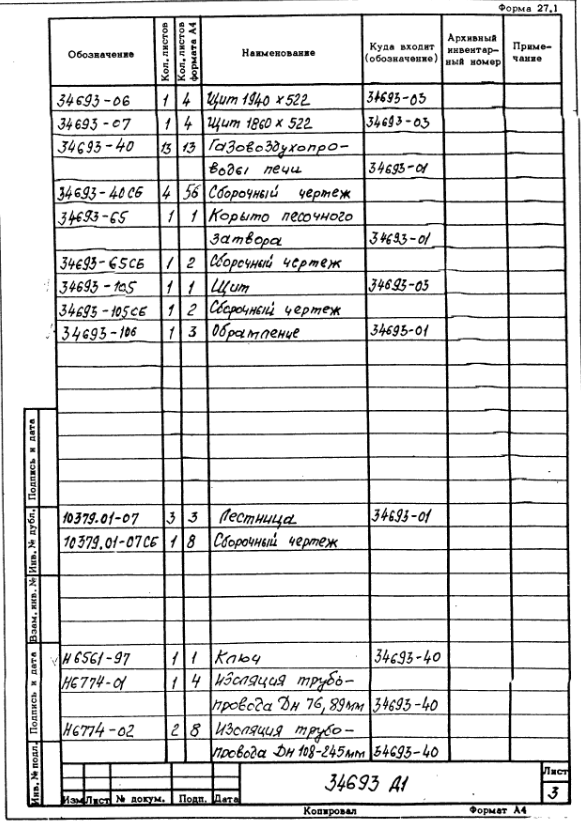 Форма 27.1
Обозначение Кол. листов Кол. листов формата А4 Наименование Куда входит (обозначение) Архивный инвентарный номер Примечание
34693-06 1 4 Щит 1940 x 522 34693-03
34693-07 1 4 Щит 1860 x 522 34693-03
34693-40 13 13 Газовоздухопро-
воды печи 34693-01
34693-40СБ 4 56 Сборочный чертеж
34693-65 1 1 Корыто песочного
затвора 34693-01
34693-65СБ 1 2 Сборочный чертеж
34693-105 1 1 Щит 34693-03
34693-105СБ 1 2 Сборочный чертеж
34693-106 1 3 Обрамление 34693-01
10379.01-07 3 3 Лестница 34693-01
10379.01-07СБ 1 8 Сборочный чертеж
Н6561-97 1 1 Ключ 34693-40
Н6774-01 1 4 Изоляция трубо-
провода Дн 76,89мм 34693-40
Н6774-02 2 8 Изоляция трубо-
провода Дн 108-245мм 34693-40
Подпись и дата
Инв. № дубл.
Взам. инв. №
Подпись и дата
Инв. № подл.
Изм Лист № докум. Подп. Дата
34693 Д1
Лист
3
Копировал Формат А4